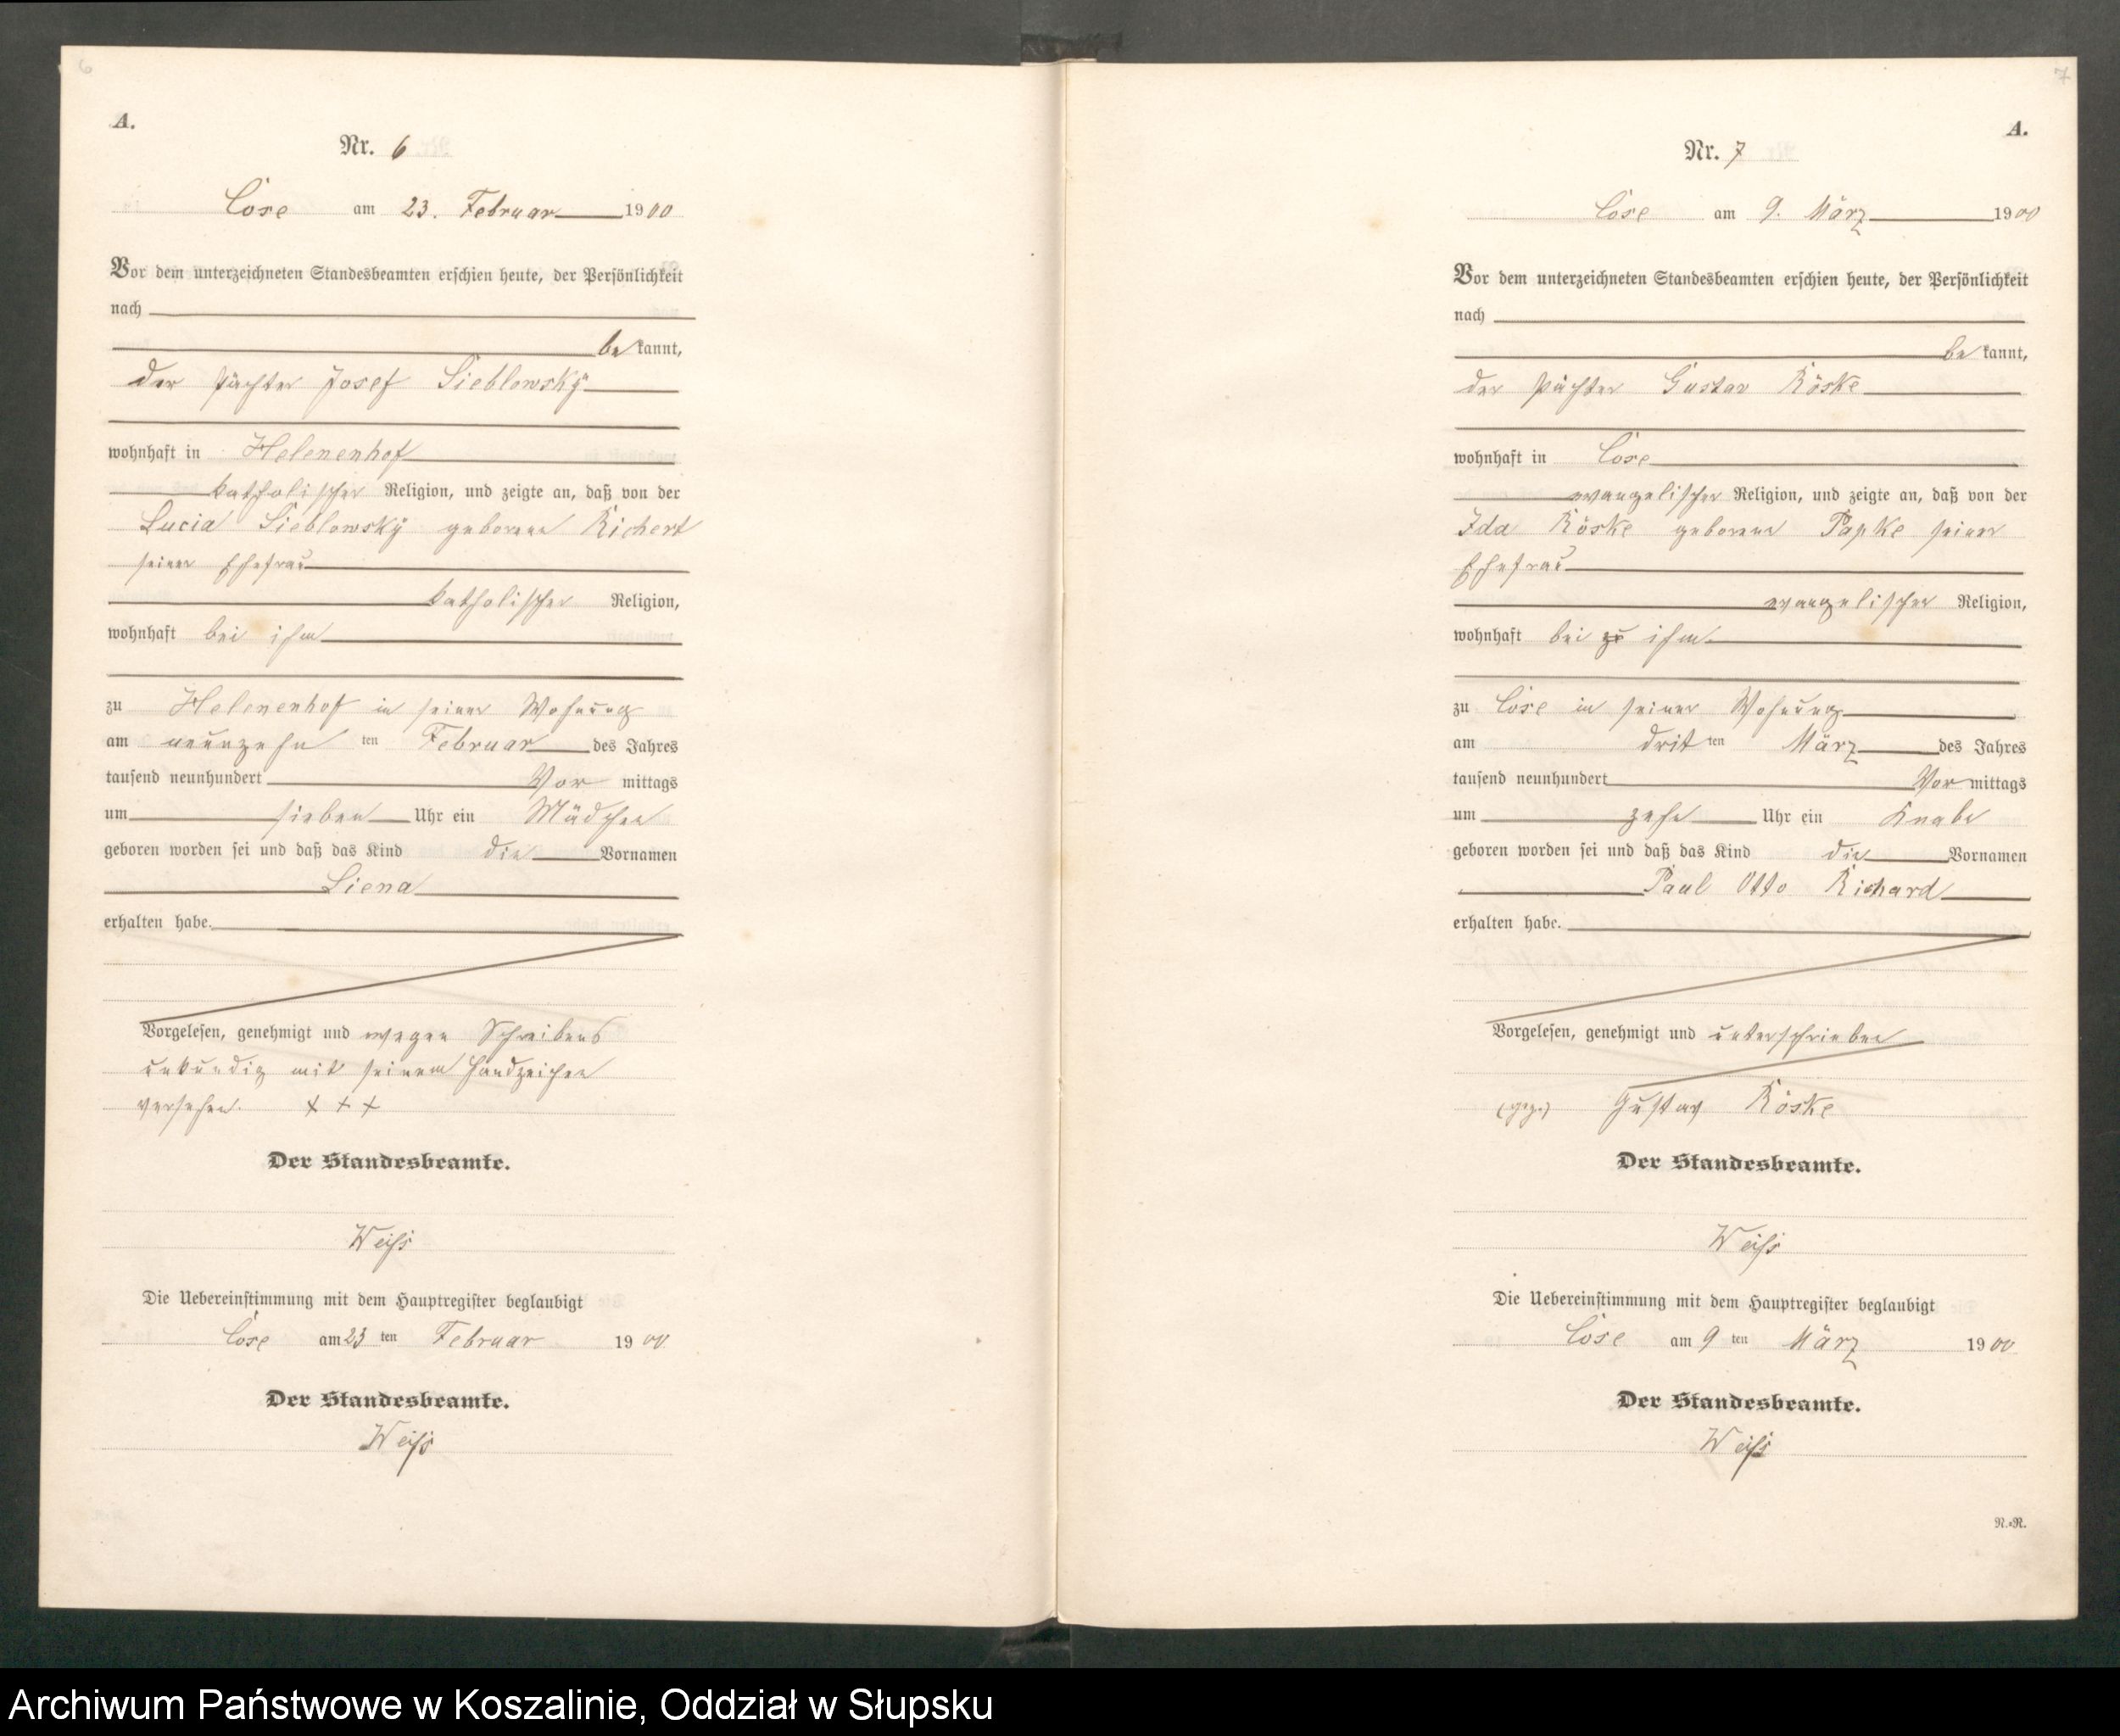 6
A.
Nr. 6
Cose am 23. Februar 1900
Vor dem unterzeichneten Standesbeamten erschien heute, der Persönlichkeit
nach
bekannt,
der Pächter Josef Sieblowsky
wohnhaft in Helenenhof
katholischer Religion, und zeigte an, daß von der
Lucia Sieblowsky geborene Richert
seiner Ehefrau
katholischer Religion,
wohnhaft bei ihm
zu Helenenhof in seiner Wohnung
am neunzehn ten Februar des Jahres
tausend neunhundert Vor mittags
um sieben Uhr ein Mädchen
geboren worden sei und daß das Kind die Vornamen
Liena
erhalten habe.
Vorgelesen, genehmigt und wegen Schreibens
unkundig mit seinem Handzeichen
versehen. + + +
Der Standesbeamte.
Weiß
Die Uebereinstimmung mit dem Hauptregister beglaubigt
Cose am 23 ten Februar 1900
Der Standesbeamte.
Weiß
7
A.
Nr. 7
Cose am 9. März 1900
Vor dem unterzeichneten Standesbeamten erschien heute, der Persönlichkeit
nach
bekannt,
der Pächter Gustav Röske
wohnhaft in Cose
evangelischer Religion, und zeigte an, daß von der
Ida Röske geborene Papke seiner
Ehefrau
evangelischer Religion,
wohnhaft bei zu ihm
zu Cose in seiner Wohnung
am dritten März des Jahres
tausend neunhundert Vor mittags
um zehn Uhr ein Knabe
geboren worden sei und daß das Kind die Vornamen
Paul Otto Richard
erhalten habe.
Vorgelesen, genehmigt und unterschrieben
(gez.) Gustav Röske
Der Standesbeamte.
Weiß
Die Uebereinstimmung mit dem Hauptregister beglaubigt
Cose am 9 ten März 1900
Der Standesbeamte.
Weiß
N.-R.
Archiwum Państwowe w Koszalinie, Oddział w Słupsku